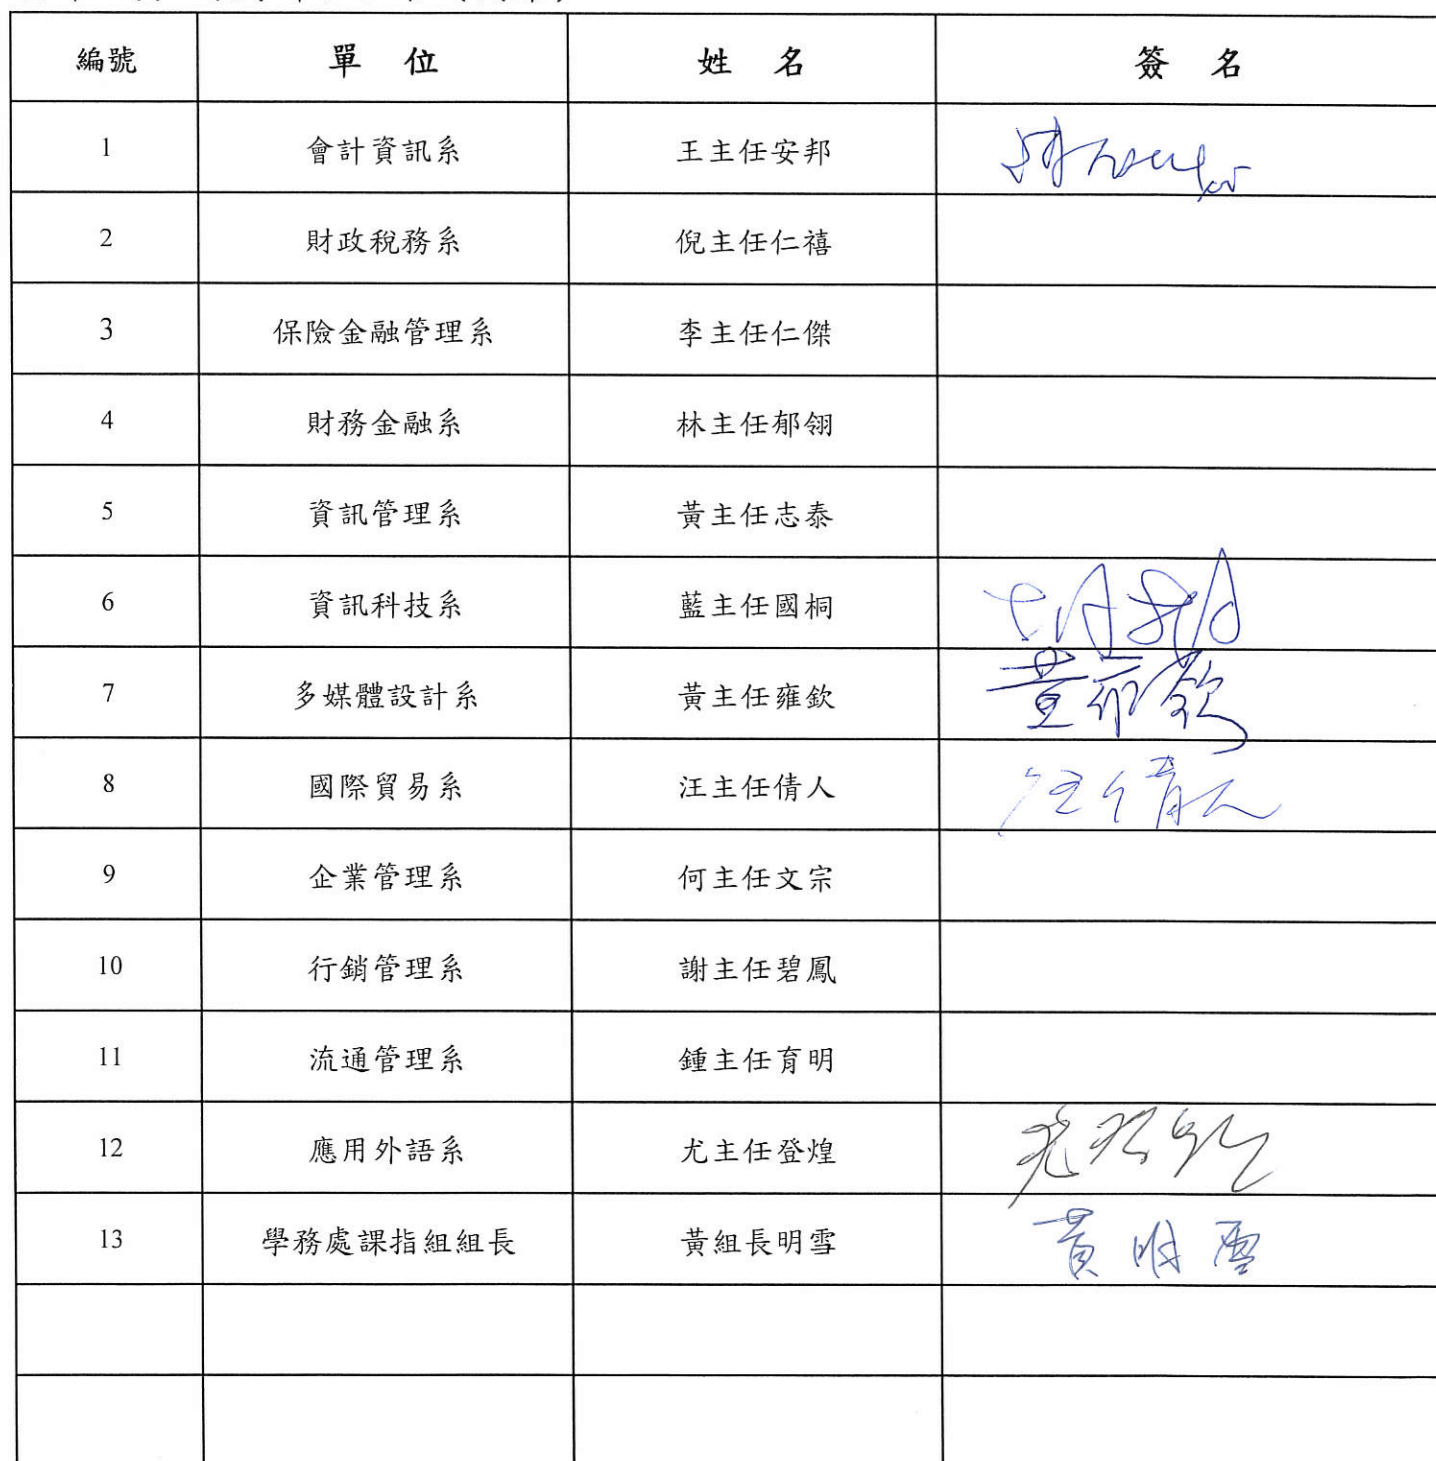 編號 單位 姓名 簽名
1 會計資訊系 王主任安邦
2 財政稅務系 倪主任仁禧
3 保險金融管理系 李主任仁傑
4 財務金融系 林主任郁翎
5 資訊管理系 黃主任志泰
6 資訊科技系 藍主任國桐
7 多媒體設計系 黃主任雍欽 黃雍欽
8 國際貿易系 汪主任倩人 汪倩人
9 企業管理系 何主任文宗
10 行銷管理系 謝主任碧鳳
11 流通管理系 鍾主任育明
12 應用外語系 尤主任登煌
13 學務處課指組組長 黃組長明雪 黃明雪